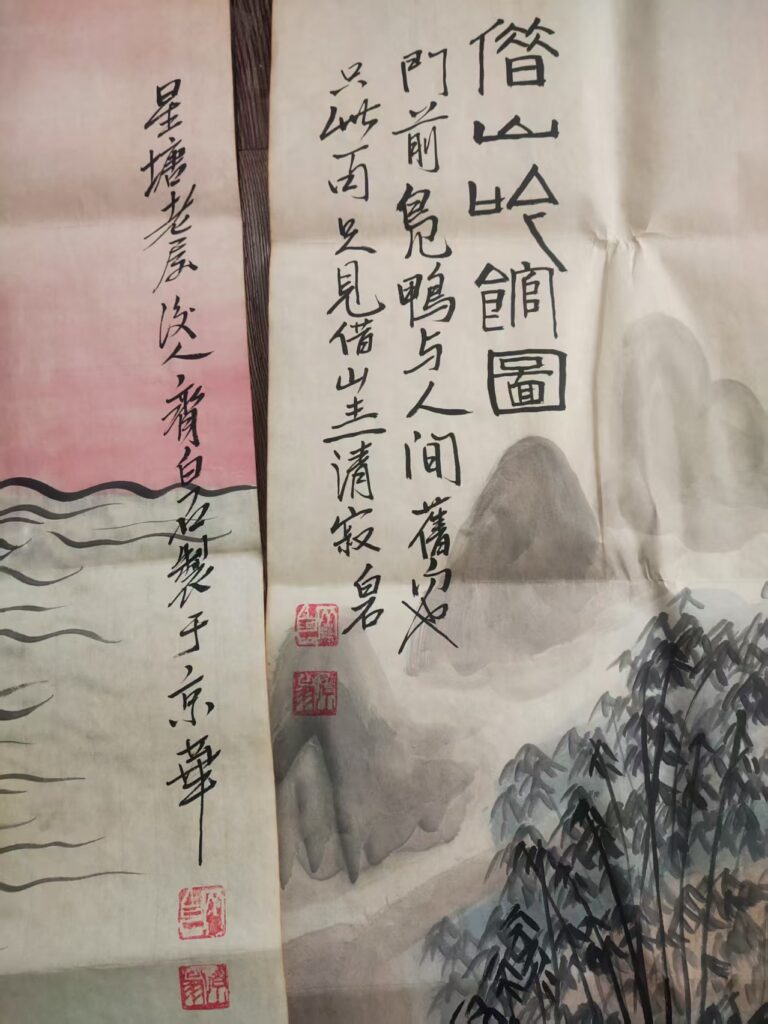 借山吟館圖
門前鳧鴨与人间舊
只此只見借山清寂白石
星塘老屋後人齊白石製于京華